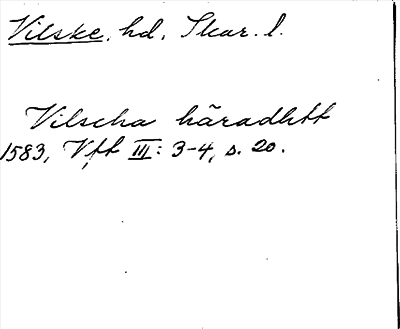 Vilske, hd, Skar. l.
Vilscha häradhtt
1583, Vft III: 3-4, s. 20.